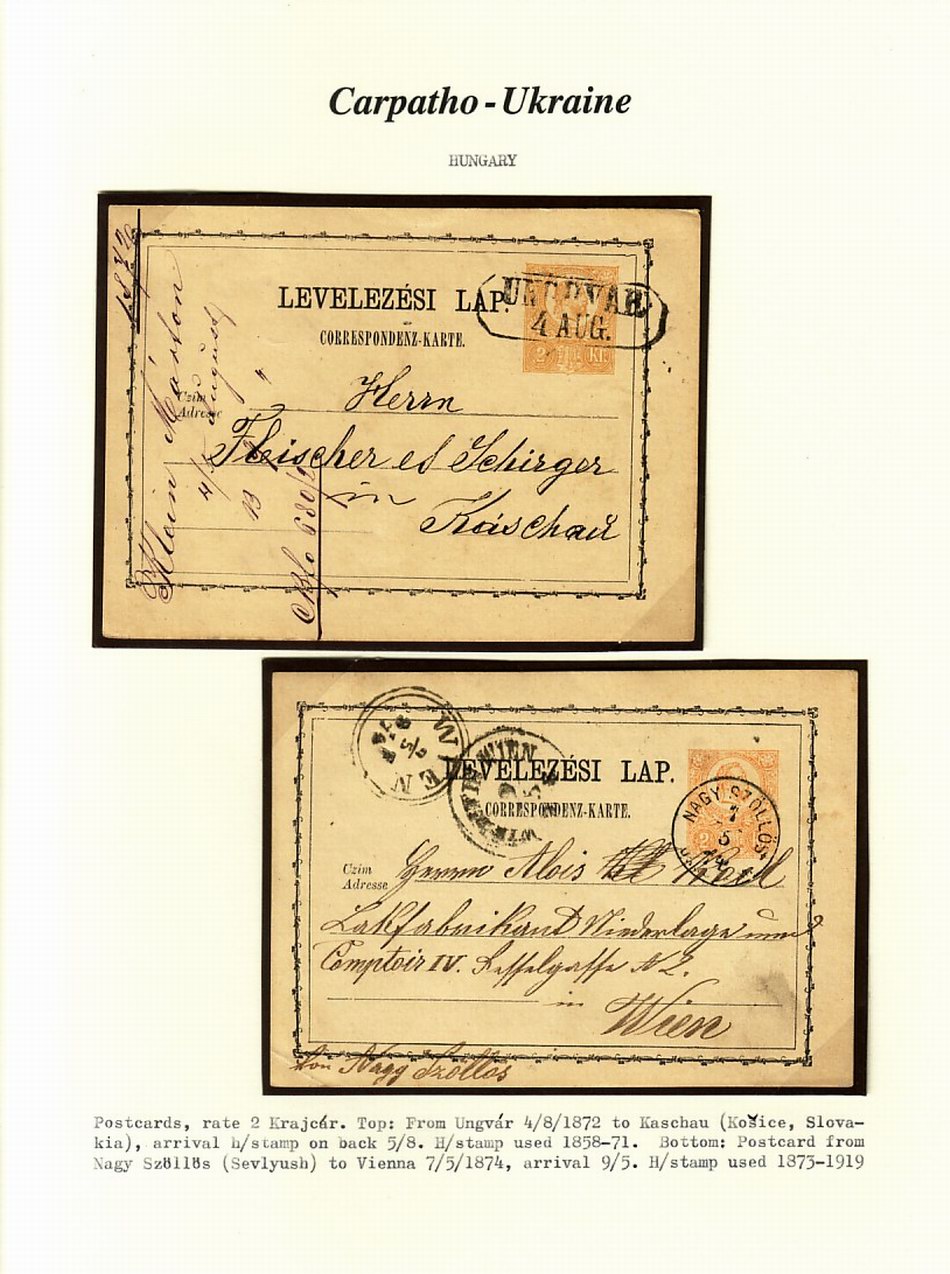 Carpatho - Ukraine
HUNGARY
1872
LEVELEZÉSI LAP.
CORRESPONDENZ-KARTE.
UNGVÁR
4 AUG.
2 Kr.
Klein Márton
4/8 August
Czim
Adresse
Herrn
Fleischer es Schirger
in
Kaschau
WIEN
9/5
WIEN
LEVELEZÉSI LAP.
CORRESPONDENZ-KARTE.
NAGY SZÖLLÖS
7
5
2
Czim
Adresse
Herrn Alois
Lakfabrikant Niederlage und
Comptoir IV. Kesselgasse N 2.
in
Wien
von Nagy Szöllös
Postcards, rate 2 Krajcár. Top: From Ungvár 4/8/1872 to Kaschau (Košice, Slova-
kia), arrival h/stamp on back 5/8. H/stamp used 1858-71.  Bottom: Postcard from
Nagy Szöllös (Sevlyush) to Vienna 7/5/1874, arrival 9/5. H/stamp used 1873-1919